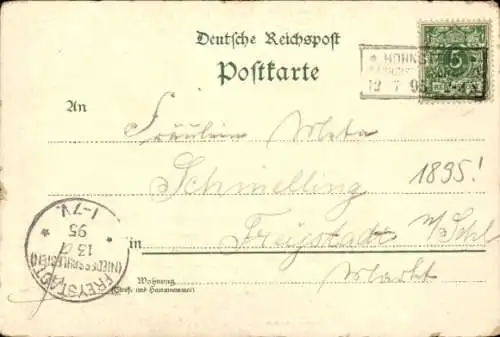 Deutsche Reichspost
Postkarte
5
* HOHNST
12 7 95
An
Fräulein Meta
Schmelling
1895!
in Freystadt N/Schl
Markt
Wohnung
(Straße und Hausnummer)
FREYSTADT
(NIEDERSCHLESIEN)
13 7
95
1-7V.